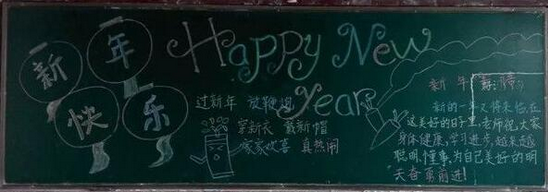 新年快乐
Happy New
Year
过新年 放鞭炮
穿新衣 戴新帽
家家欢喜 真热闹
新年寄语:
新的一年又将来临,在
这美好的日子里,老师祝大家
身体健康,学习进步,越来越
聪明、懂事,为自己美好的明
天奋革前进!